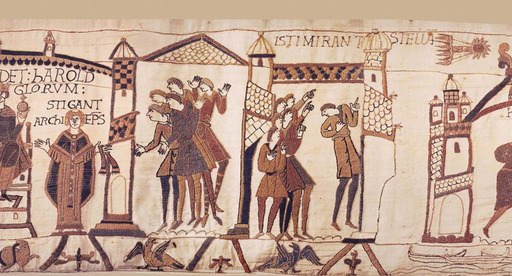 DET: hAROLD
GLORVM:
STIGANT
ARChI EPS
ISTI MIRANT STELLA